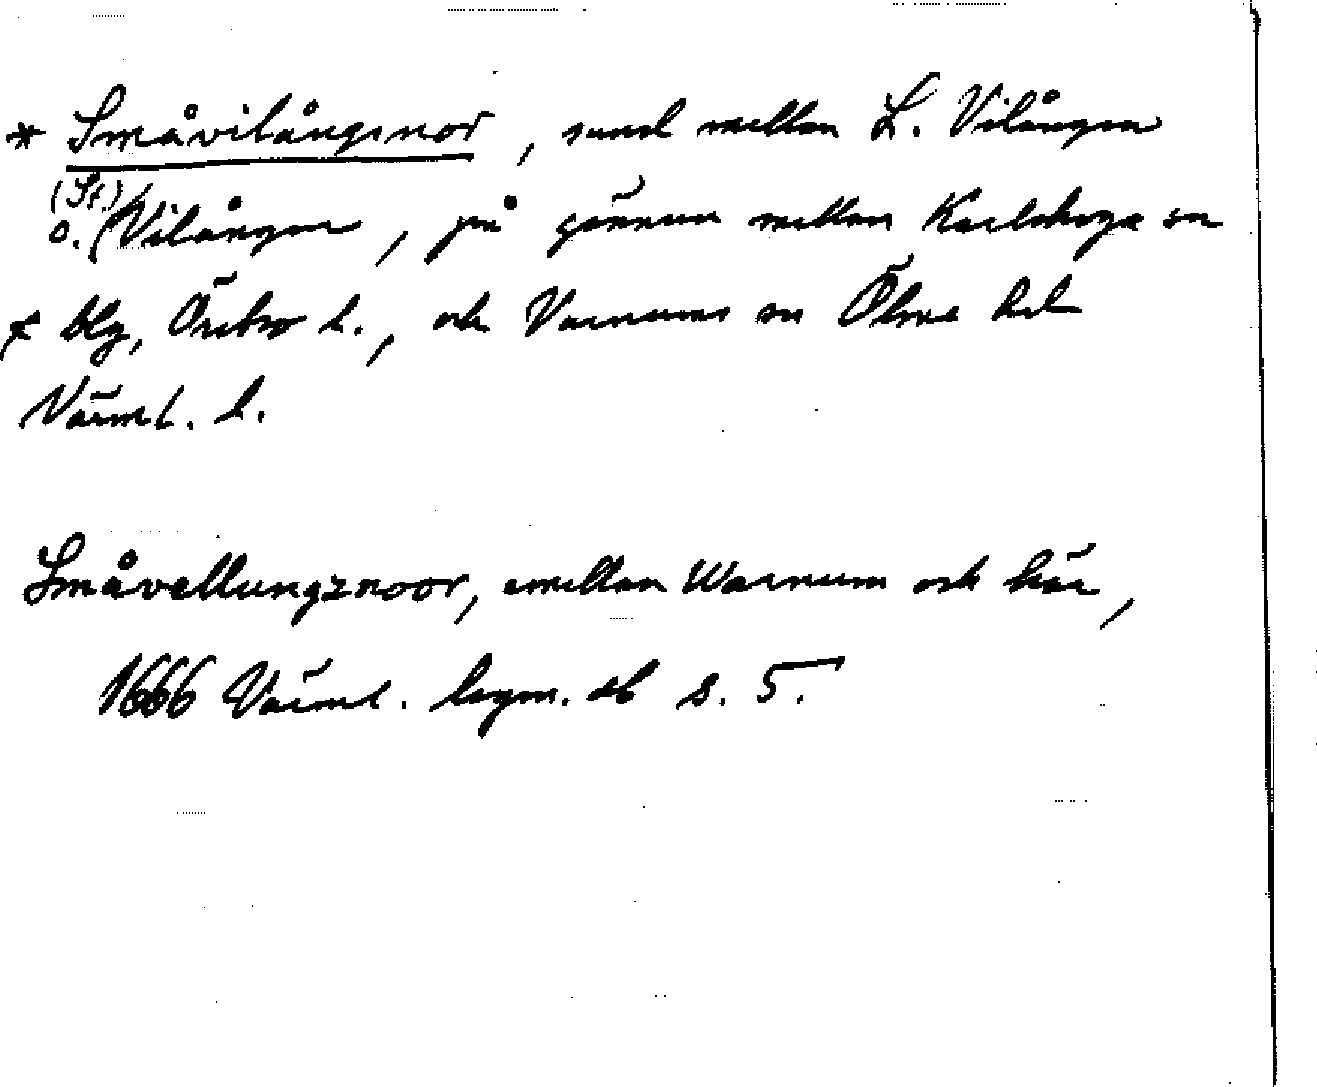 * Småvilångsnor, sund mellan L. Vilången
o. (St.) Vilången, på gränsen mellan Karlskoga sn
o. blg, Örebro l., och Varnums sn Ölme hd
Värml. l.
Småvellungznoor, emellan Warnum och här,
1666 Värml. lagm. db s. 5.